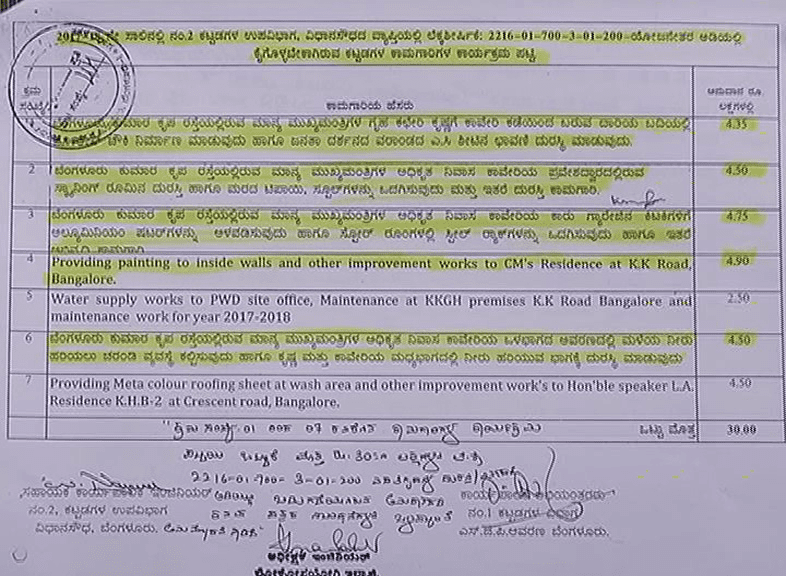 ಸಾಲಿನಲ್ಲಿ ನಂ.2 ಕಟ್ಟಡಗಳ ಉಪವಿಭಾಗ, ವಿಧಾನಸೌಧದ ವ್ಯಾಪ್ತಿಯಲ್ಲಿ ಲೆಕ್ಕಶೀರ್ಷಿಕೆ: 2216-01-700-3-01-200-ಯೋಜನೇತರ ಅಡಿಯಲ್ಲಿ
ಕೈಗೊಳ್ಳಬೇಕಾಗಿರುವ ಕಟ್ಟಡಗಳ ಕಾಮಗಾರಿಗಳ ಕಾರ್ಯಕ್ರಮ ಪಟ್ಟಿ
ಕ್ರಮ ಸಂಖ್ಯೆ ಕಾಮಗಾರಿಯ ಹೆಸರು ಅನುದಾನ ರೂ. ಲಕ್ಷಗಳಲ್ಲಿ
ಬೆಂಗಳೂರು ಕುಮಾರ ಕೃಪ ರಸ್ತೆಯಲ್ಲಿರುವ ಮಾನ್ಯ ಮುಖ್ಯಮಂತ್ರಿಗಳ ಗೃಹ ಕಛೇರಿ ಕೃಷ್ಣಗೆ ಕಾವೇರಿ ಕಡೆಯಿಂದ ಬರುವ ದಾರಿಯ ಬದಿಯಲ್ಲಿ 4.35
ಚೌಕಿ ನಿರ್ಮಾಣ ಮಾಡುವುದು ಹಾಗೂ ಜನತಾ ದರ್ಶನದ ವರಾಂಡದ ಎ.ಸಿ ಶೀಟಿನ ಛಾವಣಿ ದುರಸ್ಥಿ ಮಾಡುವುದು.
2 ಬೆಂಗಳೂರು ಕುಮಾರ ಕೃಪ ರಸ್ತೆಯಲ್ಲಿರುವ ಮಾನ್ಯ ಮುಖ್ಯಮಂತ್ರಿಗಳ ಅಧಿಕೃತ ನಿವಾಸ ಕಾವೇರಿಯ ಪ್ರವೇಶದ್ವಾರದಲ್ಲಿರುವ 4.50
ಸ್ಕ್ಯಾನಿಂಗ್ ರೂಮಿನ ದುರಸ್ತಿ ಹಾಗೂ ಮರದ ಟಿಪಾಯಿ, ಸ್ಟೂಲ್‌ಗಳನ್ನು ಒದಗಿಸುವುದು ಮತ್ತು ಇತರೆ ದುರಸ್ತಿ ಕಾಮಗಾರಿ.
3 ಬೆಂಗಳೂರು ಕುಮಾರ ಕೃಪ ರಸ್ತೆಯಲ್ಲಿರುವ ಮಾನ್ಯ ಮುಖ್ಯಮಂತ್ರಿಗಳ ಅಧಿಕೃತ ನಿವಾಸ ಕಾವೇರಿಯ ಕಾರು ಗ್ಯಾರೇಜಿನ ಕಿಟಕಿಗಳಿಗೆ 4.75
ಅಲ್ಯೂಮಿನಿಯಂ ಷಟರ್‌ಗಳನ್ನು ಅಳವಡಿಸುವುದು ಹಾಗೂ ಸ್ಟೋರ್ ರೂಂಗಳಲ್ಲಿ ಸ್ಟೀಲ್ ರ್‍ಯಾಕ್‌ಗಳನ್ನು ಒದಗಿಸುವುದು ಹಾಗೂ ಇತರೆ
4 Providing painting to inside walls and other improvement works to CM's Residence at K.K Road, 4.90
Bangalore.
5 Water supply works to PWD site office, Maintenance at KKGH premises K.K Road Bangalore and 2.50
maintenance work for year 2017-2018
6 ಬೆಂಗಳೂರು ಕುಮಾರ ಕೃಪ ರಸ್ತೆಯಲ್ಲಿರುವ ಮಾನ್ಯ ಮುಖ್ಯಮಂತ್ರಿಗಳ ಅಧಿಕೃತ ನಿವಾಸ ಕಾವೇರಿಯ ಒಳಭಾಗದ ಆವರಣದಲ್ಲಿ ಮಳೆಯ ನೀರು 4.50
ಹರಿಯಲು ಚರಂಡಿ ವ್ಯವಸ್ಥೆ ಕಲ್ಪಿಸುವುದು ಹಾಗೂ ಕೃಷ್ಣ ಮತ್ತು ಕಾವೇರಿಯ ಮಧ್ಯಭಾಗದಲ್ಲಿ ನೀರು ಹರಿಯುವ ಭಾಗಕ್ಕೆ ದುರಸ್ತಿ ಮಾಡುವುದು
7 Providing Meta colour roofing sheet at wash area and other improvement work's to Hon'ble speaker L.A. 4.50
Residence K.H.B-2 at Crescent road, Bangalore.
ಒಟ್ಟು ಮೊತ್ತ 30.00
2216-01-700-3-01-200
ಸಹಾಯಕ ಕಾರ್ಯಪಾಲಕ ಇಂಜಿನಿಯರ್
ನಂ.2, ಕಟ್ಟಡಗಳ ಉಪವಿಭಾಗ
ವಿಧಾನಸೌಧ, ಬೆಂಗಳೂರು.
ನಂ.1 ಕಟ್ಟಡಗಳ ವಿಭಾಗ
ಎಸ್.ಜೆ.ಪಿ.ಆವರಣ ಬೆಂಗಳೂರು.